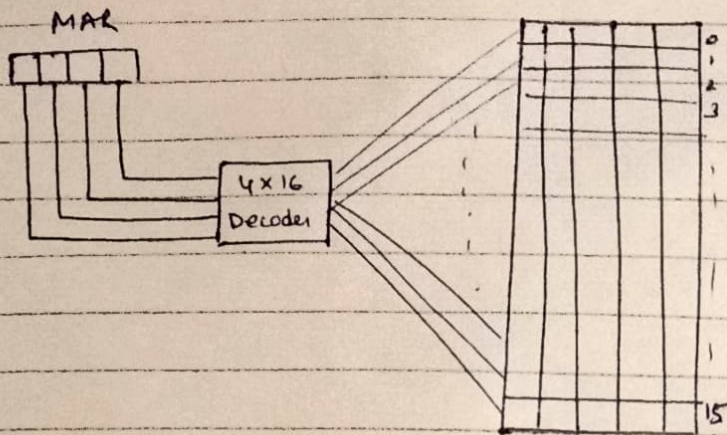 MAR
4 x 16
Decoder
0
1
2
3
15